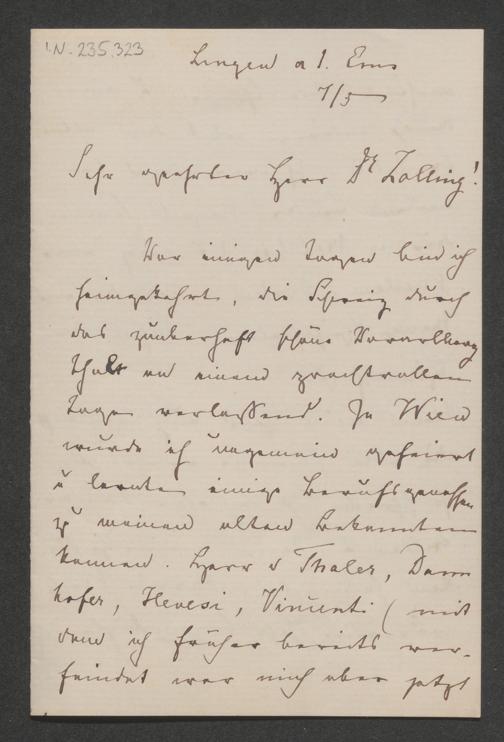 I.N. 235.323
Lingen a. d. Ems
7/5
Sehr geehrter Herr Dr Zolling!
Vor einigen Tagen bin ich
heimgekehrt, die Schweiz durch
das zauberhaft schöne Vorarlberg
Thal an einem prachtvollen
Tage verlassend. In Wien
wurde ich ungemein gefeiert
u lernte einige Berufsgenossen
zu meinen alten Bekannten
kennen. Herr v Thaler, Dann
hofer, Hevesi, Vincenti (mit
dem ich früher bereits ver-
feindet war mich aber jetzt